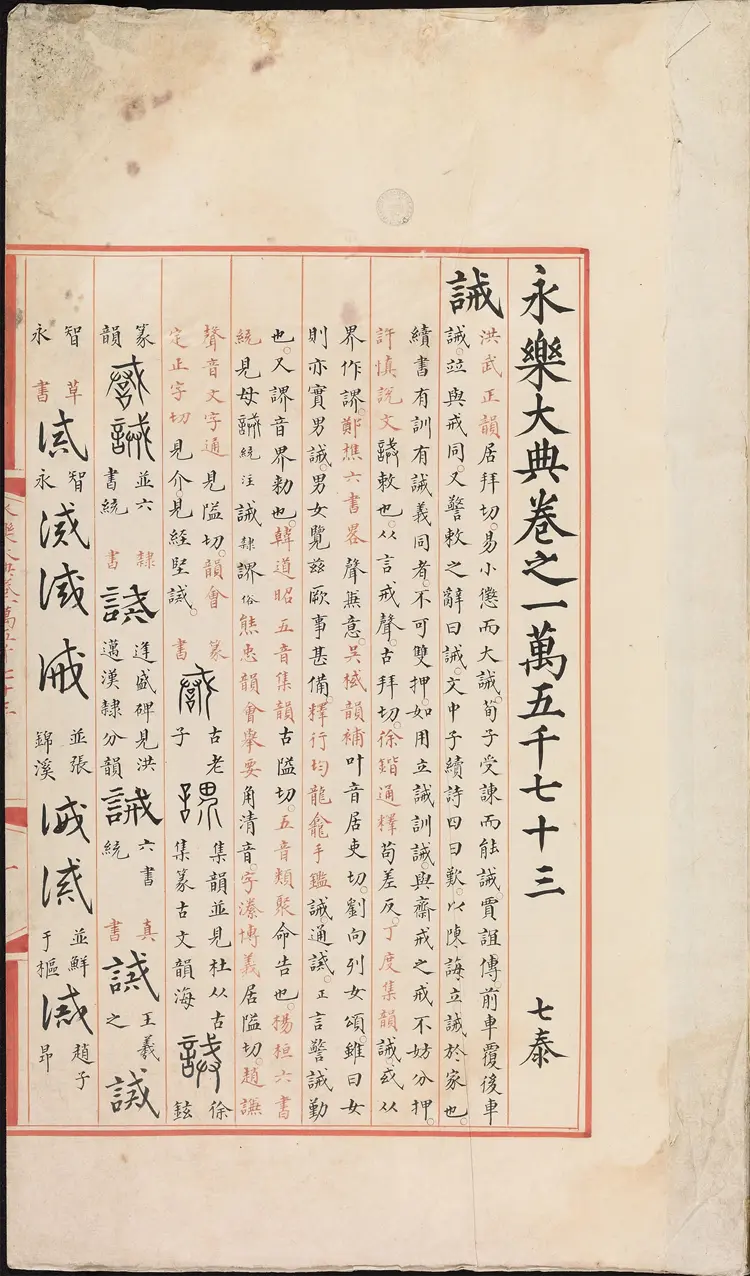 永樂大典卷之一萬五千七十三 七泰
誡 洪武正韻居拜切。易小懲而大誡。荀子受諫而能誡。賈誼傳。前車覆後車
誡。竝與戒同。又警敕之辭曰誡。文中子續詩四曰歎。以陳誨立誡於家也。
續書有訓有誡義同者。不可雙押。如用立誡訓誡。與齋戒之戒不妨分押。
許慎說文誡敕也。从言戒聲。古拜切。徐鍇通釋苟差反。丁度集韻誡或从
界作䛺。鄭樵六書畧聲兼意。吳棫韻補叶音居吏切。劉向列女頌。雖曰女
則亦實男誡。男女覽茲厥事甚備。釋行均龍龕手鑑誡通諴。正言警誡勤
也。又䛺音界勑也。韓道昭五音集韻古隘切。五音類聚命告也。楊桓六書
統見母誡統注誡隸䛺俗熊忠韻會舉要角清音。字潫博義居隘切。趙謙
聲音文字通見隘切。韻會
定正字切見介。見經堅誡。 篆書 誡 古老子 䛺 集韻並見杜从古集篆古文韻海 誡 徐鉉
篆韻 誡 誡 並六書統 隸書 誡 逢盛碑見洪邁漢隸分韻 誡 六書統 真書 誡 王羲之 誡
智永 草書 誡 智永 誡 誡 誡 並張錦溪 誡 誡 並鮮于樞 誡 趙子昻
永樂大典卷一萬五千七十三 一